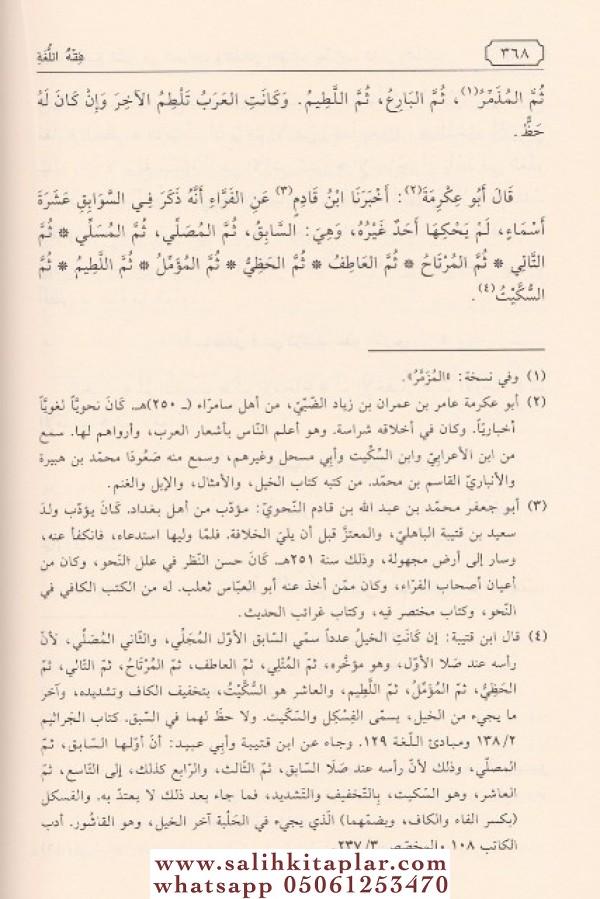 ٣٦٨
فِقْهُ اللُّغَةِ
ثُمَّ المُذَمَّرُ(١)، ثُمَّ البَارِعُ، ثُمَّ اللَّطِيمُ. وَكَانَتِ العَرَبُ تَلْطِمُ الآخِرَ وَإِنْ كَانَ لَهُ
حَظٌّ.
قَالَ أَبُو عِكْرِمَةَ(٢): أَخْبَرَنَا ابْنُ قَادِمٍ(٣) عَنِ الفَرَّاءِ أَنَّهُ ذَكَرَ فِي السَّوَابِقِ عَشَرَةَ
أَسْمَاءٍ، لَمْ يَحْكِهَا أَحَدٌ غَيْرُهُ، وَهِيَ: السَّابِقُ، ثُمَّ المُصَلِّي، ثُمَّ المُسَلِّي * ثُمَّ
التَّالِي * ثُمَّ المُرْتَاحُ * ثُمَّ العَاطِفُ * ثُمَّ الحَظِيُّ * ثُمَّ المُؤَمَّلُ * ثُمَّ اللَّطِيمُ * ثُمَّ
السُّكَّيْتُ(٤).
(١) وفي نسخة: «المُزَمَّرُ».
(٢) أبو عكرمة عامر بن عمران بن زياد الضّبّيّ، من أهل سامرّاء (ـ ٢٥٠)هـ. كَانَ نحويّاً لغويّاً
أخباريّاً. وكان في أخلاقه شراسة. وهو أعلم النّاس بأشعار العرب، وأرواهم لها. سمع
من ابن الأعرابيّ وابن السكّيت وأبي مسحل وغيرهم، وسمع منه صَعُودَا محمّد بن هبيرة
والأنباريّ القاسم بن محمّد. من كتبه كتاب الخيل، والأمثال، والإبل والغنم.
(٣) أبو جعفر محمّد بن عبد الله بن قادم النّحويّ: مؤدّب من أهل بغداد. كَانَ يؤدّب ولدَ
سعيد بن قتيبة الباهليّ، والمعتزَّ قبل أن يليَ الخلافة. فلمّا وليها استدعاه، فانكفأ عنه،
وسار إلى أرض مجهولة، وذلك سنة ٢٥١هـ. كَانَ حسن النّظر في علل النّحو، وكان من
أعيان أصحاب الفرّاء، وكان ممّن أخذ عنه أبو العبّاس ثعلب. له من الكتب الكافي في
النّحو، وكتاب مختصر فيه، وكتاب غرائب الحديث.
(٤) قال ابن قتيبة: إن كَانَتِ الخيلُ عدداً سمّي السّابق الأوّل المُجَلّي، والثّاني المُصَلّي، لأنّ
رأسه عند صَلا الأوّل، وهو مؤخّره، ثمّ المُتْلِي، ثمّ العاطف، ثمّ المُرْتَاحُ، ثمّ التّالي، ثمّ
الحَظِيُّ، ثمّ المُؤَمَّلُ، ثمّ اللَّطِيم، والعاشر هو السُّكَّيْتُ، بتخفيف الكاف وتشديده، وآخر
ما يجيء من الخيل، يسمّى الفِسْكِل والسّكّيت. ولا حظَّ لهما في السّبق. كتاب الجَراثيم
١٣٨/٢ ومبادئ اللّغة ١٢٩. وجاء عن ابن قتيبة وأبي عبيد: أنّ أوّلها السّابق، ثمّ
المصلّي، وذلك لأنّ رأسه عند صَلَا السّابق، ثمّ الثّالث، والرّابع كذلك، إلى التّاسع، ثمّ
العاشر، وهو السّكيت، بِالتّخفيف والتّشديد، فما جاء بعد ذلك لا يعتدّ به. والفسكل
(بكسر الفاء والكاف، وبضمّهما) الّذي يجيء في الحَلْبة آخر الخيل، وهو القاشُور. أدب
الكاتب ١٠٨ والمخصّص ٢٣٧/٣.
www.salihkitaplar.com
whatsapp 05061253470